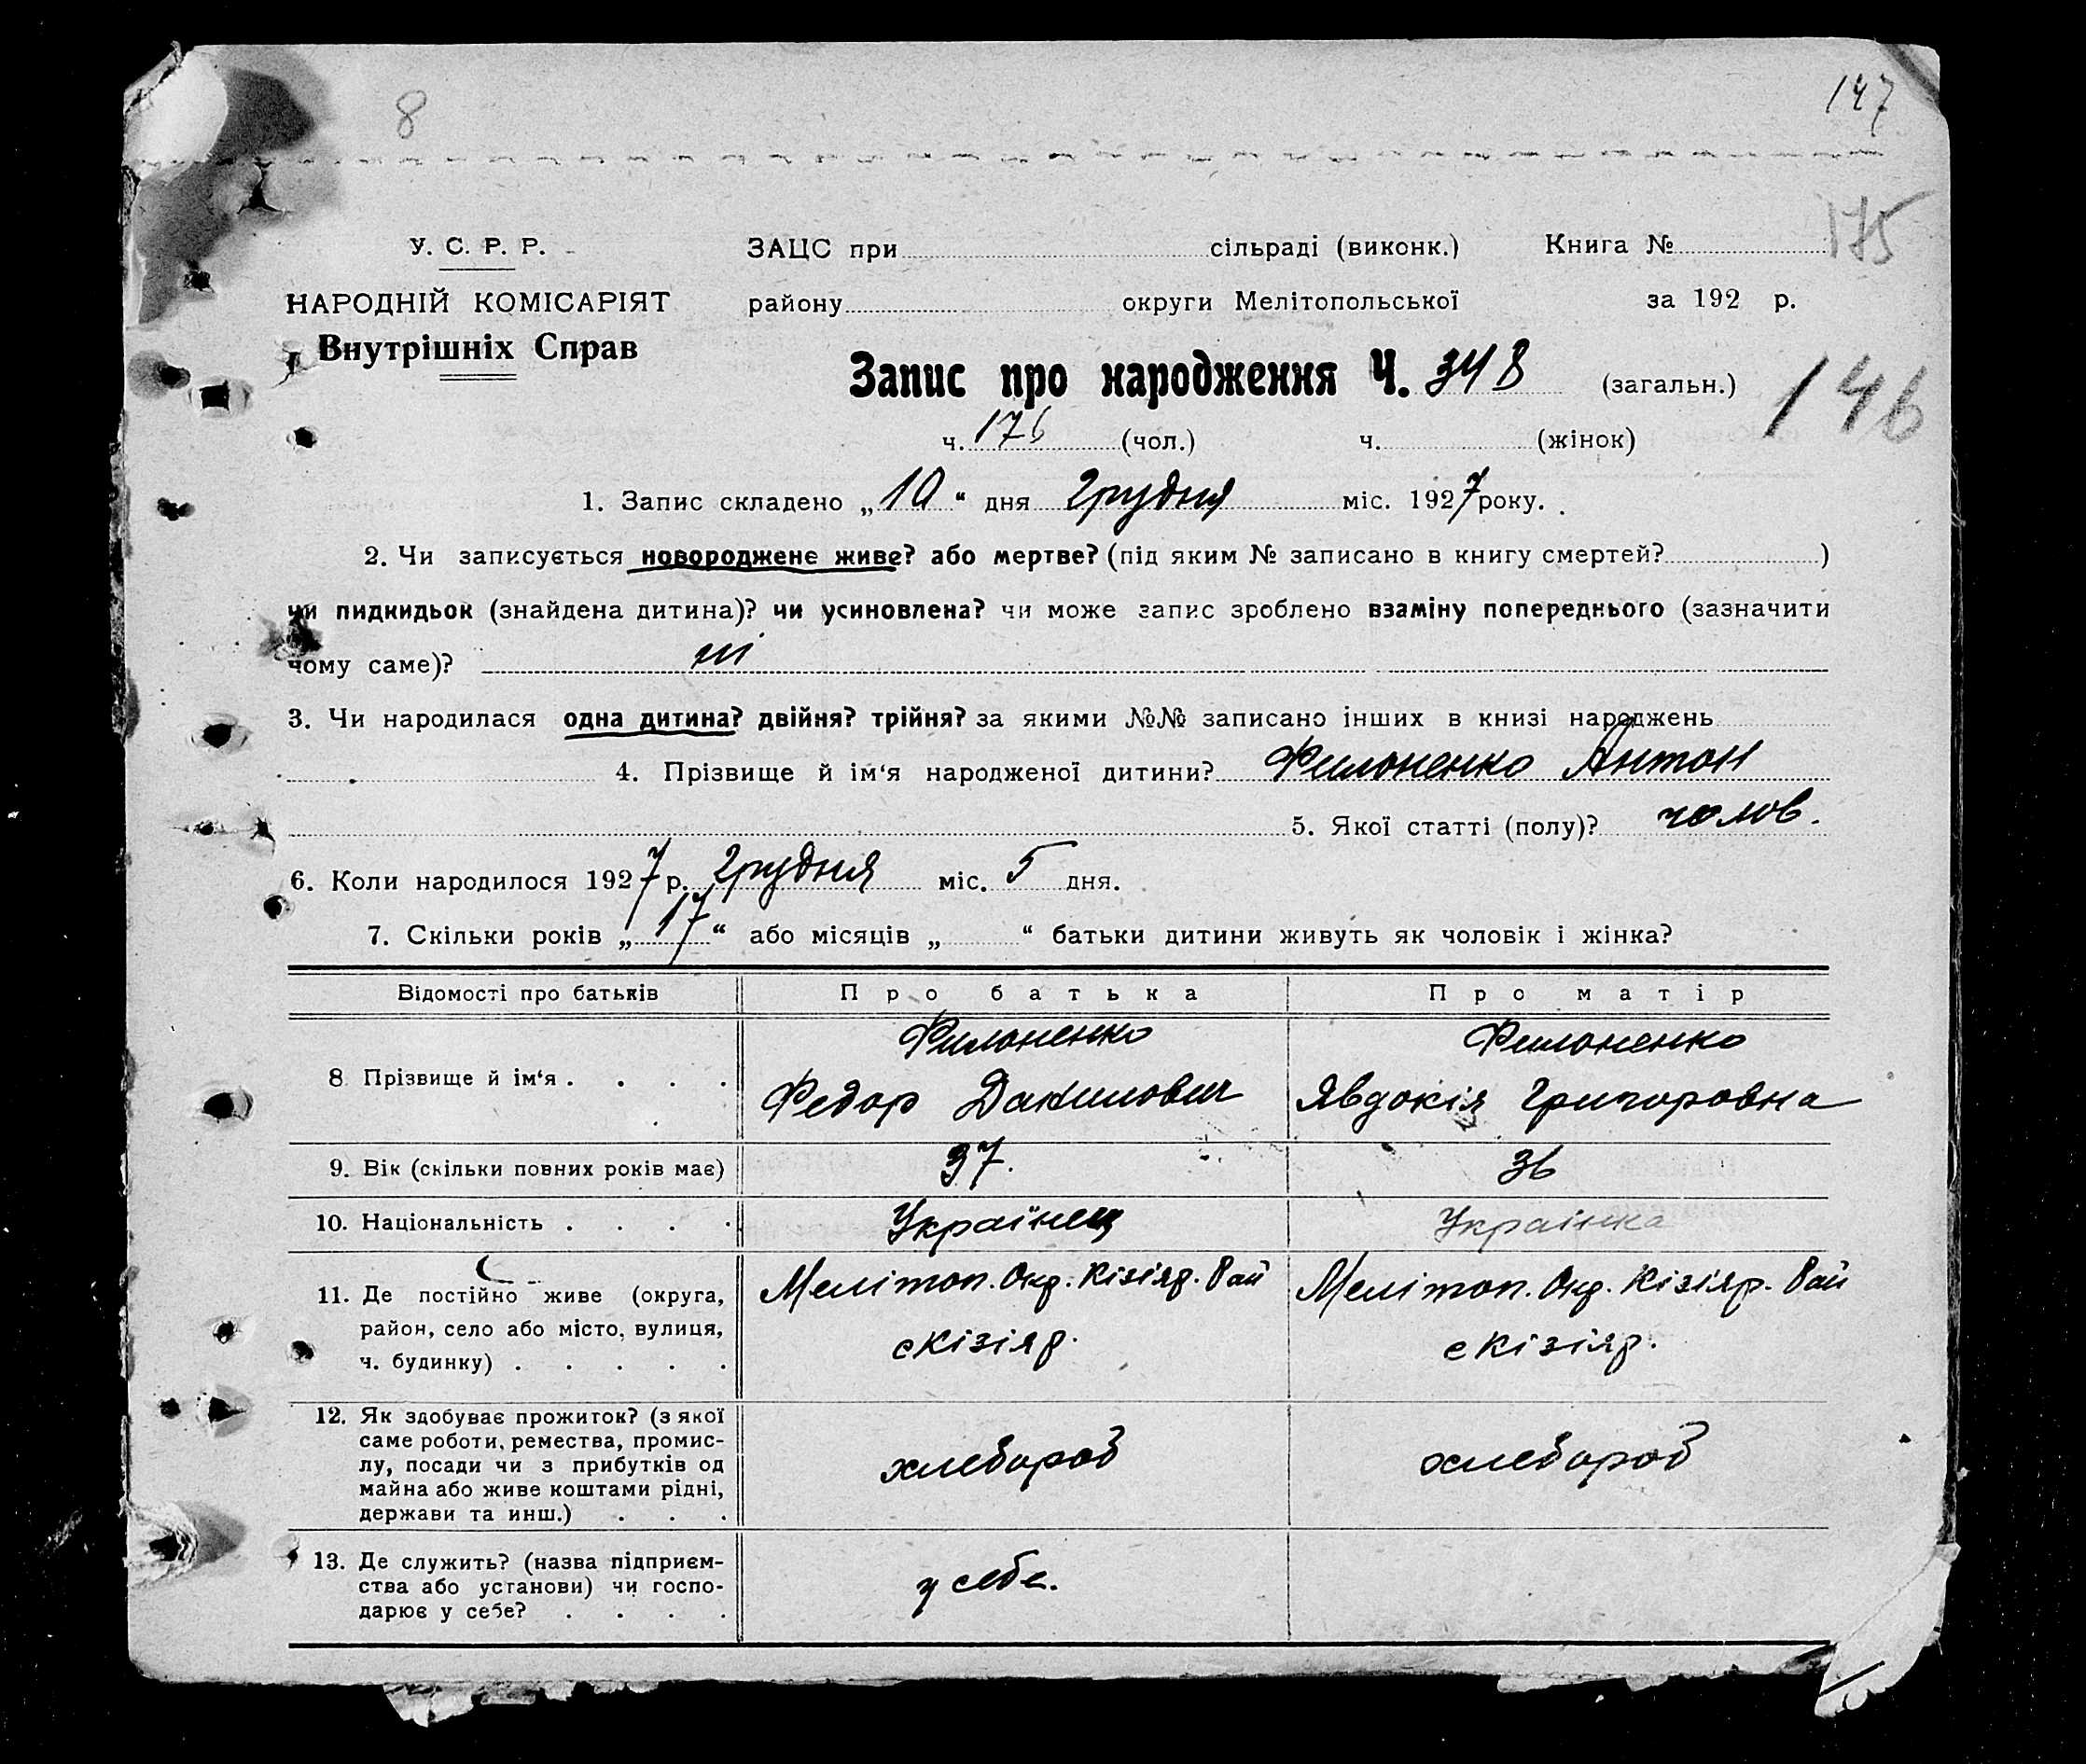 8
147
175
У. С. Р. Р.
ЗАЦС при сільраді (виконк.) Книга №
НАРОДНІЙ КОМІСАРІЯТ
району округи Мелітопольської за 192 р.
Внутрішніх Справ
Запис про народження Ч. 348 (загальн.)
146
ч. 176 (чол.) ч. (жінок)
1. Запис складено „10“ дня Грудня міс. 1927 року.
2. Чи записується новороджене живе? або мертве? (під яким № записано в книгу смертей? )
чи пидкидьок (знайдена дитина)? чи усиновлена? чи може запис зроблено взаміну попереднього (зазначити
чому саме)? ні
3. Чи народилася одна дитина? двійня? трійня? за якими №№ записано інших в книзі народжень
4. Прізвище й ім‘я народженої дитини? Филоненко Антон
5. Якої статті (полу)? чолов.
6. Коли народилося 1927 р. Грудня міс. 5 дня.
7. Скільки років „17“ або місяців „ “ батьки дитини живуть як чоловік і жінка?
Відомості про батьків Про батька Про матір
Филоненко Филоненко
8 Прізвище й ім‘я . . . . Федор Данилович Явдокія Григоровна
9. Вік (скільки повних років має) 37. 36
10. Національність . . . . Українец Українка
11. Де постійно живе (округа, Мелітоп. Окр. Кізіяр. Рай Мелітоп. Окр. Кізіяр. Рай
район, село або місто, вулиця, с Кізіяр. с Кізіяр.
ч. будинку) . . . . .
12. Як здобуває прожиток? (з якої
саме роботи, ремества, промис-
лу, посади чи з прибутків од хлебороб хлебороб
майна або живе коштами рідні,
держави та инш.) . . .
13. Де служить? (назва підприєм-
ства або установи) чи госпо- у себе.
дарює у себе? . . . .